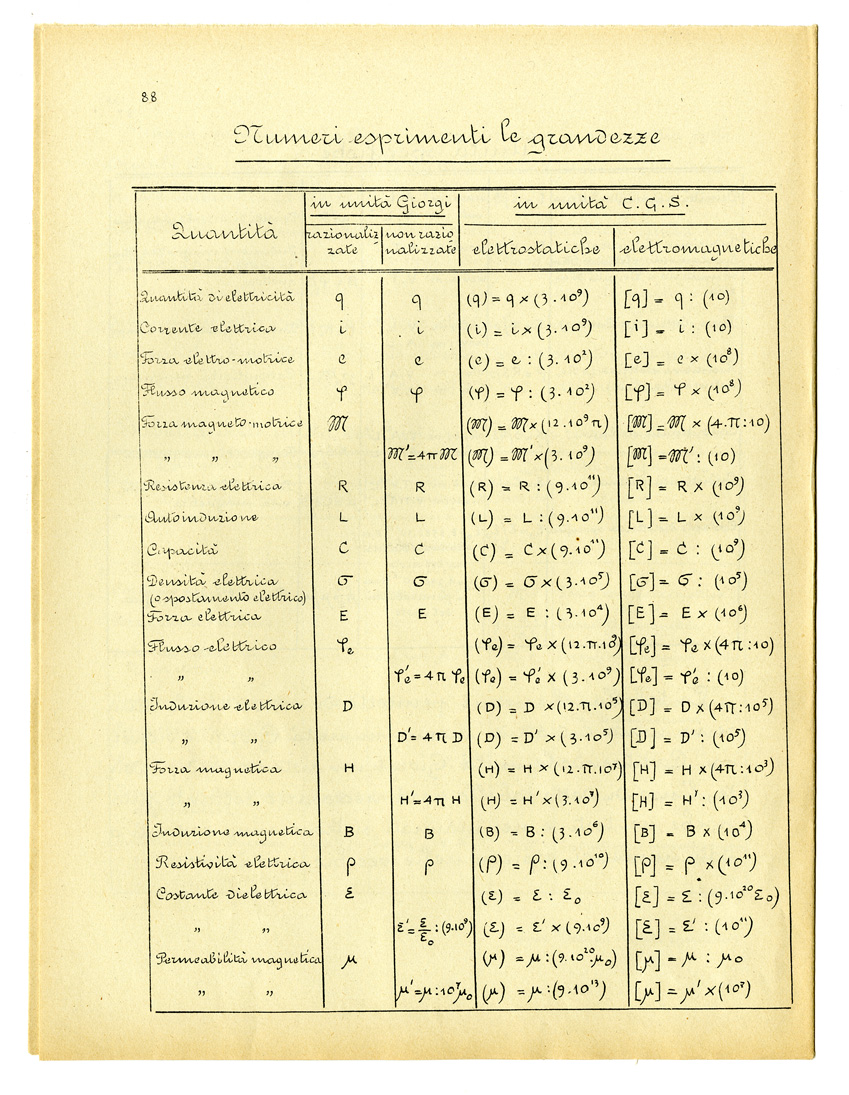 88
Numeri esprimenti le grandezze
Quantità | in unità Giorgi | in unità C.G.S.
razionaliz-zate | non razio nalizzate | elettrostatiche | elettromagnetiche
Quantità di elettricità | q | q | (q) = q × (3.10⁹) | [q] = q : (10)
Corrente elettrica | i | i | (i) = i × (3.10⁹) | [i] = i : (10)
Forza elettro-motrice | e | e | (e) = e : (3.10²) | [e] = e × (10⁸)
Flusso magnetico | φ | φ | (φ) = φ : (3.10²) | [φ] = φ × (10⁸)
Forza magneto-motrice | ℳ | | (ℳ) = ℳ × (12.10⁹π) | [ℳ] = ℳ × (4.π:10)
" " " | | ℳ'=4πℳ | (ℳ) = ℳ' × (3.10⁹) | [ℳ] = ℳ' : (10)
Resistenza elettrica | R | R | (R) = R : (9.10¹¹) | [R] = R × (10⁹)
Autoinduzione | L | L | (L) = L : (9.10¹¹) | [L] = L × (10⁹)
Capacità | C | C | (C) = C × (9.10¹¹) | [C] = C : (10⁹)
Densità elettrica | σ | σ | (σ) = σ × (3.10⁵) | [σ] = σ : (10⁵)
(o spostamento elettrico)
Forza elettrica | E | E | (E) = E : (3.10⁴) | [E] = E × (10⁶)
Flusso elettrico | φₑ | | (φₑ) = φₑ × (12.π.10⁹) | [φₑ] = φₑ × (4π:10)
" " | | φ'ₑ=4π φₑ | (φₑ) = φ'ₑ × (3.10⁹) | [φₑ] = φ'ₑ : (10)
Induzione elettrica | D | | (D) = D × (12.π.10⁵) | [D] = D × (4π:10⁵)
" " | | D'= 4π D | (D) = D' × (3.10⁵) | [D] = D' : (10⁵)
Forza magnetica | H | | (H) = H × (12.π.10⁷) | [H] = H × (4π:10³)
" " | | H'=4π H | (H) = H' × (3.10⁷) | [H] = H' : (10³)
Induzione magnetica | B | B | (B) = B : (3.10⁶) | [B] = B × (10⁴)
Resistività elettrica | ρ | ρ | (ρ) = ρ : (9.10¹⁰) | [ρ] = ρ × (10¹¹)
Costante dielettrica | ε | | (ε) = ε : ε₀ | [ε] = ε : (9.10²⁰ε₀)
" " | | ε'=ε/ε₀:(9.10⁹) | (ε) = ε' × (9.10⁹) | [ε] = ε' : (10¹¹)
Permeabilità magnetica | μ | | (μ) = μ : (9.10²⁰.μ₀) | [μ] = μ : μ₀
" " | | μ'=μ:10⁷μ₀ | (μ) = μ : (9.10¹³) | [μ] = μ' × (10⁷)